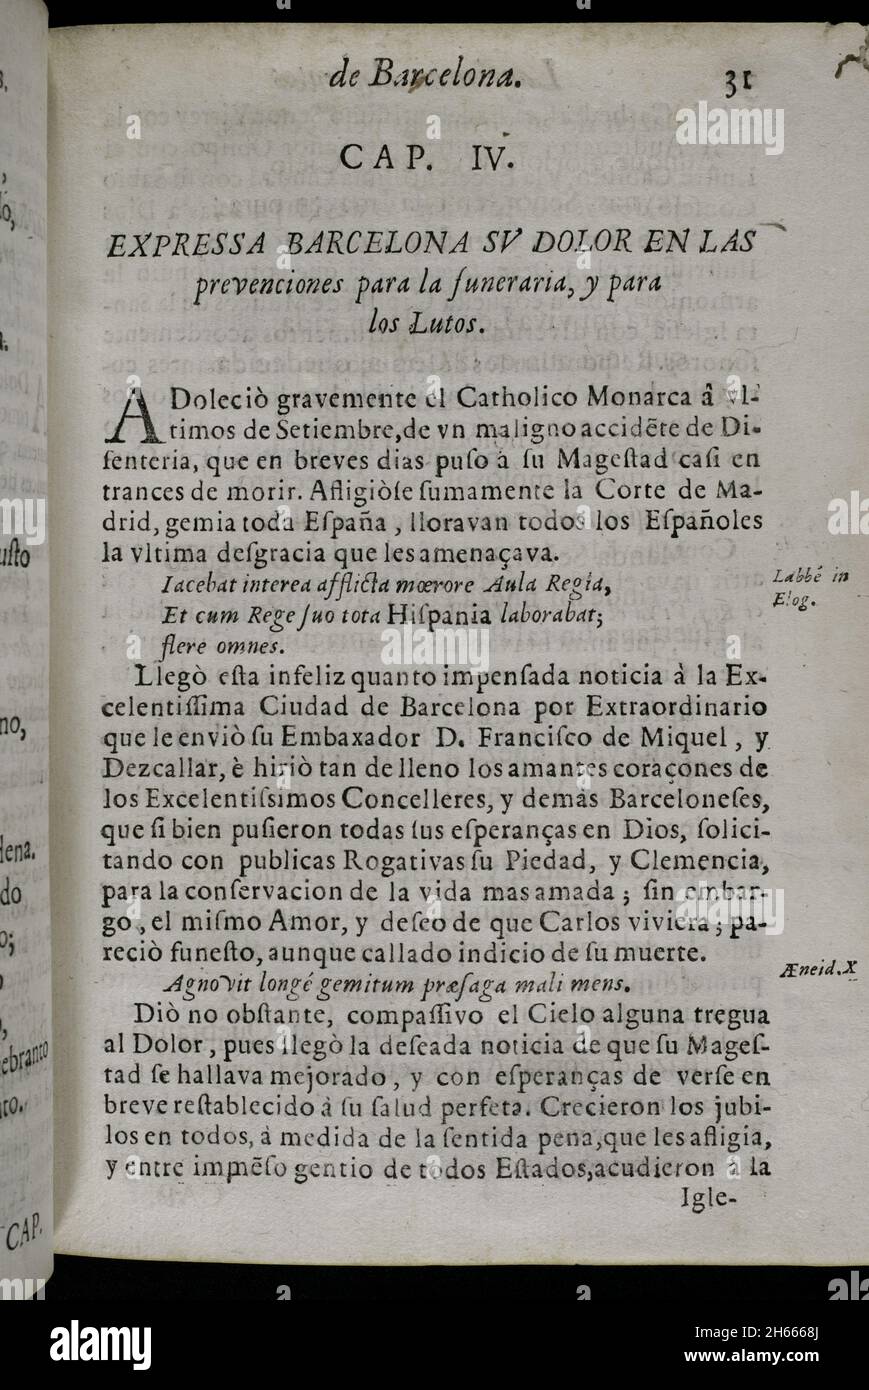 de Barcelona. 31
CAP. IV.
EXPRESSA BARCELONA SV DOLOR EN LAS
prevenciones para la funeraria, y para
los Lutos.
ADoleciò gravemente el Catholico Monarca â vl-
timos de Setiembre, de vn maligno accidẽte de Di-
ſenteria, que en breves dias puſo à ſu Mageſtad caſi en
trances de morir. Afligiòſe ſumamente la Corte de Ma-
drid, gemia toda Eſpaña, lloravan todos los Eſpañoles
la vltima deſgracia que les amenaçava.
Iacebat interea afflicta mœrore Aula Regia,
Labbé in
Elog.
Et cum Rege ſuo tota Hiſpania laborabat;
flere omnes.
Llegò eſta infeliz quanto impenſada noticia à la Ex-
celentiſſima Ciudad de Barcelona por Extraordinario
que le enviò ſu Embaxador D. Franciſco de Miquel, y
Dezcallar, è hiriò tan de lleno los amantes coraçones de
los Excelentiſsimos Concelleres, y demàs Barceloneſes,
que ſi bien puſieron todas ſus eſperanças en Dios, ſolici-
tando con publicas Rogativas ſu Piedad, y Clemencia,
para la conſervacion de la vida mas amada; ſin embar-
go, el miſmo Amor, y deſeo de que Carlos viviera; pa-
reciò funeſto, aunque callado indicio de ſu muerte.
Agnovit longé gemitum præſaga mali mens.
Æneid. X
Diò no obſtante, compaſſivo el Cielo alguna tregua
al Dolor, pues llegò la deſeada noticia de que ſu Mageſ-
tad ſe hallava mejorado, y con eſperanças de verſe en
breve reſtablecido à ſu ſalud perfeta. Crecieron los jubi-
los en todos, à medida de la ſentida pena, que les afligia,
y entre impẽſo gentio de todos Eſtados, acudieron à la
Igle-
ſto
no,
lena.
do
ebranto
CAP.
alamy
Image ID: 2H6668J
www.alamy.com